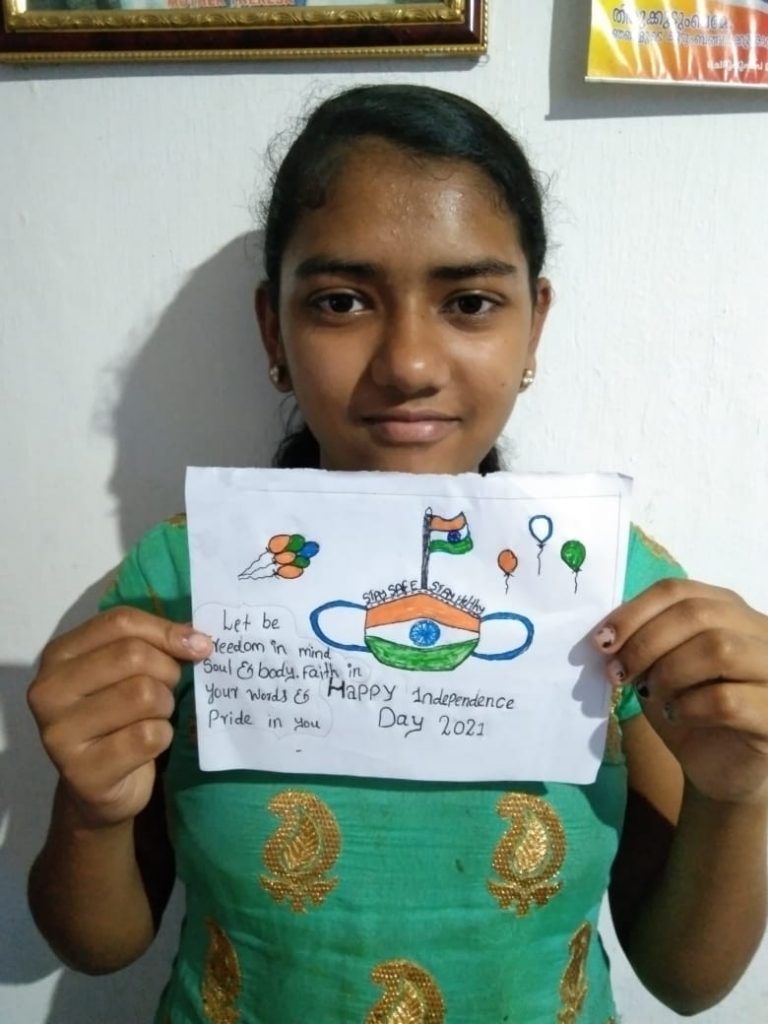 MOTHER THERESA
തിരുക്കുടുംബമേ,
STAY SAFE STAY HEALTHY
Let be
freedom in mind
Soul & body. Faith in
your words &
Pride in you
Happy Independence
Day 2021